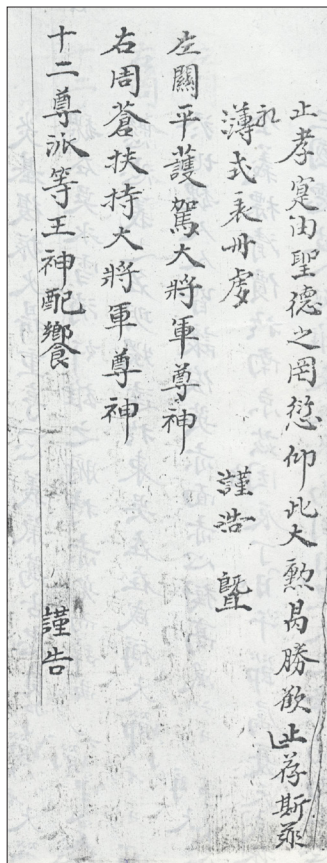 止孝寔由聖德之罔愆仰此大勲曷勝欽止荐斯菲
薄式表冊虔 謹浩 曁
左關平護駕大將軍尊神
右周蒼扶持大將軍尊神
十二尊派等王神配饗 謹告